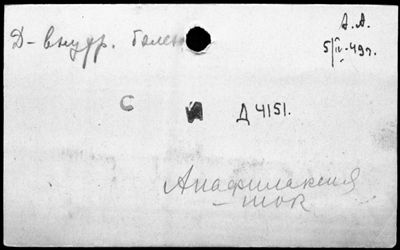 А. А.
Д - внутр. болезн
5/IV-49г.
С И Д 4151.
Анафилаксия
- шок